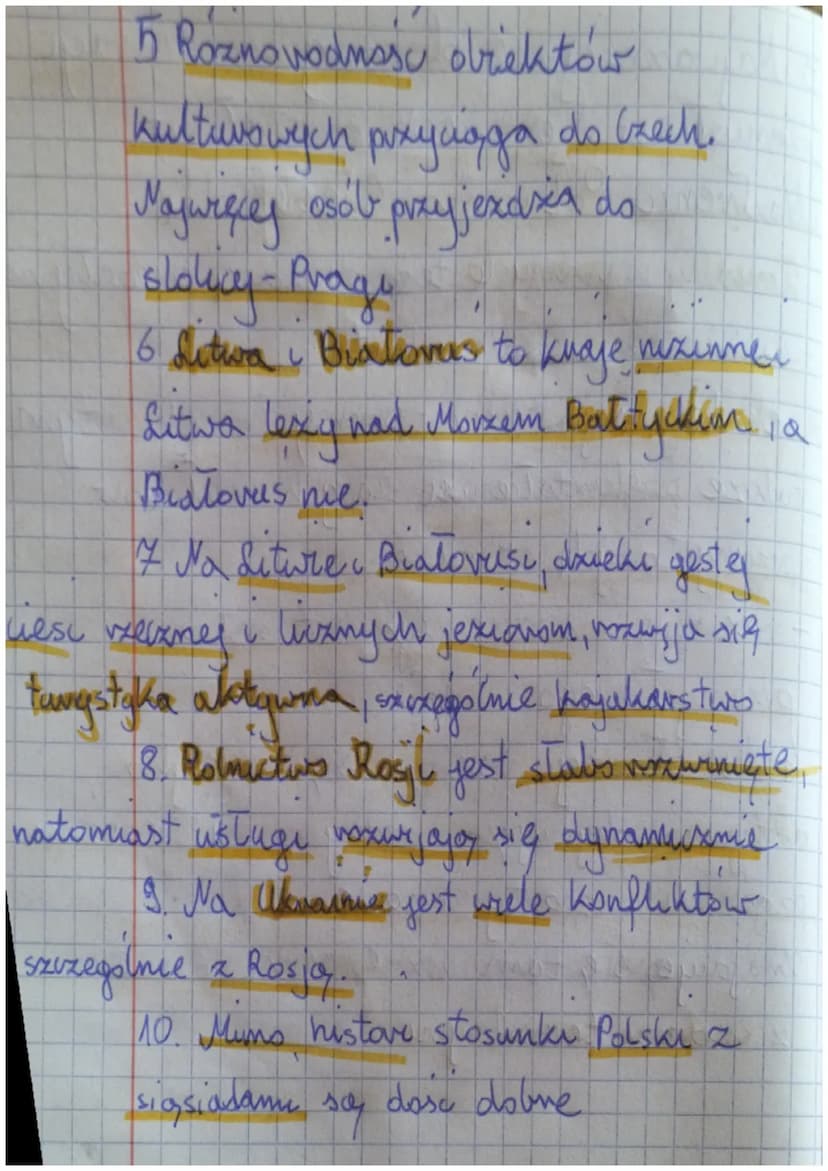 5 Różnorodność obiektów
kulturowych przyciąga do Czech.
Najwięcej osób przyjeżdża do
stolicy - Pragi
6 Litwa i Białoruś to kraje nizinne.
Litwa leży nad Morzem Bałtyckim, a
Białoruś nie.
7 Na Litwie i Białorusi, dzięki gęstej
sieci rzecznej i licznych jeziorom, rozwija się
turystyka aktywna, szczególnie kajakarstwo
8. Rolnictwo Rosji jest słabo rozwinięte,
natomiast usługi rozwijają się dynamicznie
9. Na Ukrainie jest wiele konfliktów
szczególnie z Rosją.
10. Mimo histori stosunki Polski z
siąsiadami są dość dobre